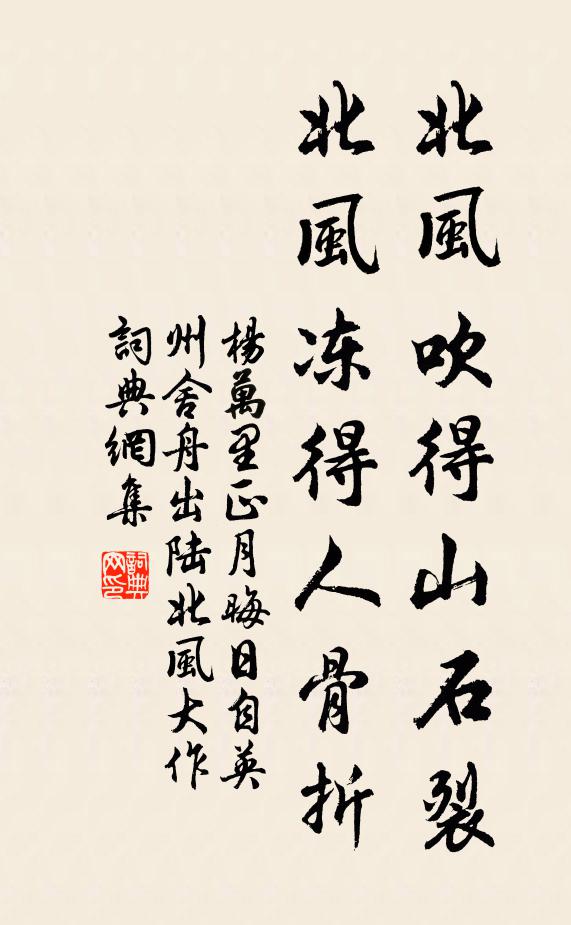 北風吹得山石裂
北風冻得人骨折
楊萬里正月晦日自英
州舍舟出陆北風大作
詞典網集
詞典
网印